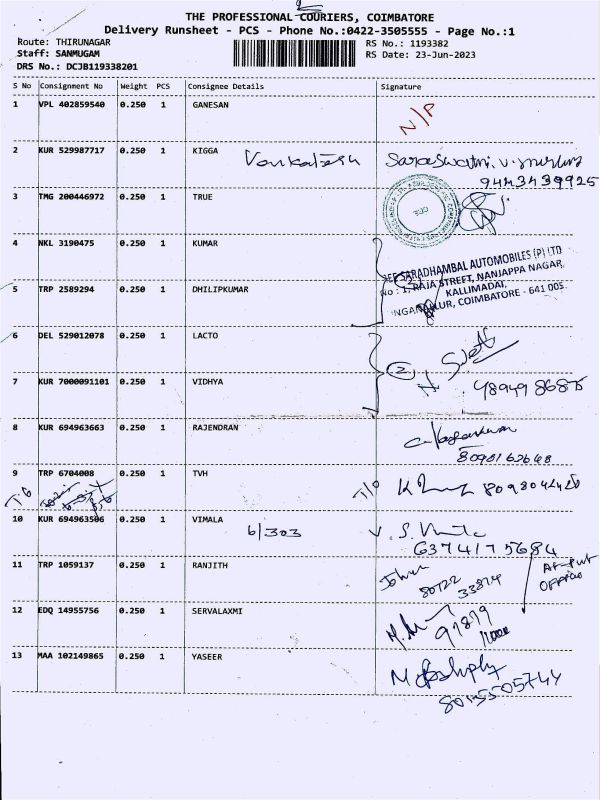 THE PROFESSIONAL COURIERS, COIMBATORE
Delivery Runsheet - PCS - Phone No.:0422-3505555 - Page No.:1
Route: THIRUNAGAR
RS No.: 1193382
Staff: SANMUGAM
RS Date: 23-Jun-2023
DRS No.: DCJB119338201
S No Consignment No Weight PCS Consignee Details Signature
1 VPL 402859540 0.250 1 GANESAN
N/P
2 KUR 529987717 0.250 1 KIGGA Vankatesh Saraswathi. V.
9443439925
3 TMG 200446972 0.250 1 TRUE
4 NKL 3190475 0.250 1 KUMAR
SARADHAMBAL AUTOMOBILES (P) LTD
No : 1, RAJA STREET, NANJAPPA NAGAR,
KALLIMADAI,
COIMBATORE - 641 005
5 TRP 2589294 0.250 1 DHILIPKUMAR
6 DEL 529012078 0.250 1 LACTO
2
7 KUR 7000091101 0.250 1 VIDHYA
8 KUR 694963663 0.250 1 RAJENDRAN
9 TRP 6704008 0.250 1 TVH
10 KUR 694963506 0.250 1 VIMALA 6/303
6374175684
11 TRP 1059137 0.250 1 RANJITH
80722
33874
12 EDQ 14955756 0.250 1 SERVALAXMI
13 MAA 102149865 0.250 1 YASEER
8015505744